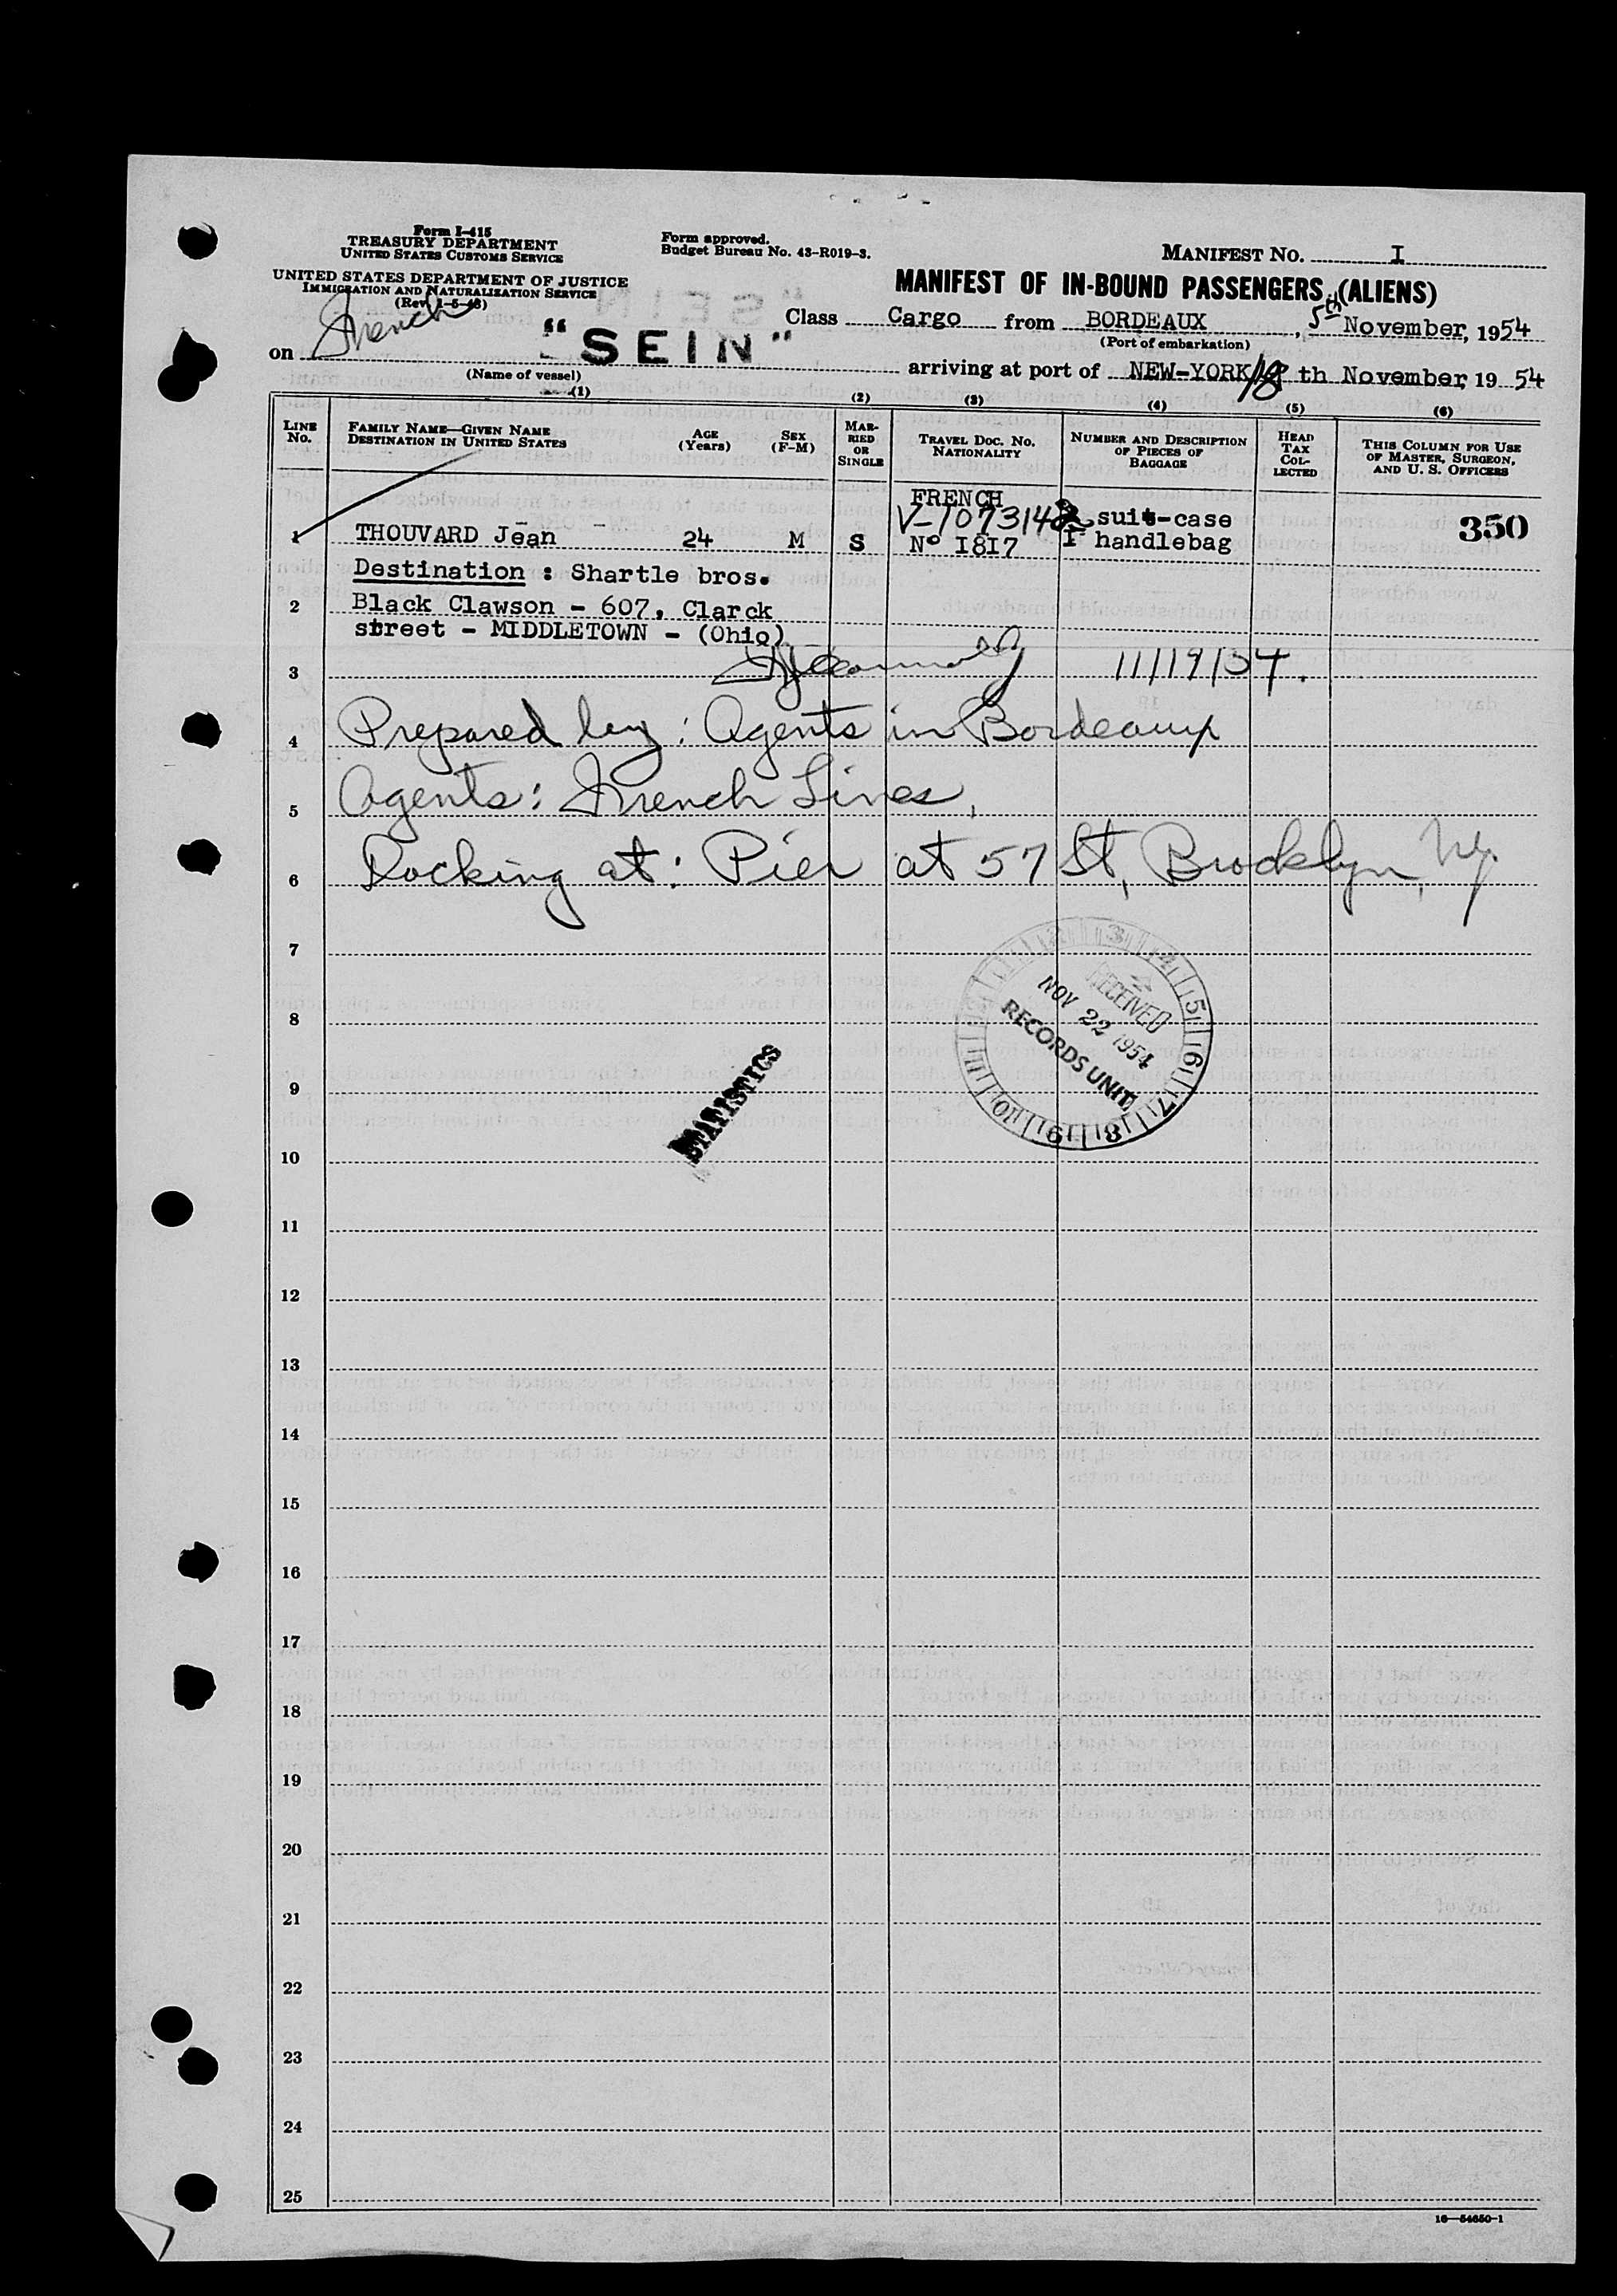 Form I-415
TREASURY DEPARTMENT
UNITED STATES CUSTOMS SERVICE
UNITED STATES DEPARTMENT OF JUSTICE
IMMIGRATION AND NATURALIZATION SERVICE
(Rev. 1-5-48)
Form approved.
Budget Bureau No. 43-R019-3.
MANIFEST NO. I
MANIFEST OF IN-BOUND PASSENGERS (ALIENS)
Class Cargo from BORDEAUX, 5th November, 1954
(Port of embarkation)
on French "SEIN"
(Name of vessel)
arriving at port of NEW-YORK 18 th November, 1954
(1) (2) (3) (4) (5) (6)
LINE NO.
FAMILY NAME—GIVEN NAME
DESTINATION IN UNITED STATES
AGE (Years)
SEX (F-M)
MARRIED OR SINGLE
TRAVEL DOC. NO.
NATIONALITY
NUMBER AND DESCRIPTION OF PIECES OF BAGGAGE
HEAD TAX COLLECTED
THIS COLUMN FOR USE OF MASTER, SURGEON, AND U. S. OFFICERS
FRENCH
V-1073148 2 suit-case 350
1 THOUVARD Jean 24 M S N° I8I7 I handlebag
Destination : Shartle bros.
2 Black Clawson - 607, Clarck
street - MIDDLETOWN - (Ohio)
3 11/19/54.
4 Prepared by: Agents in Bordeaux
5 Agents: French Lines,
6 Docking at: Pier at 57 St, Brooklyn, NY.
7
8
9
10
11
12
13
14
15
16
17
18
19
20
21
22
23
24
25
RECEIVED
NOV 22 1954
RECORDS UNIT
STATISTICS
16—54650-1